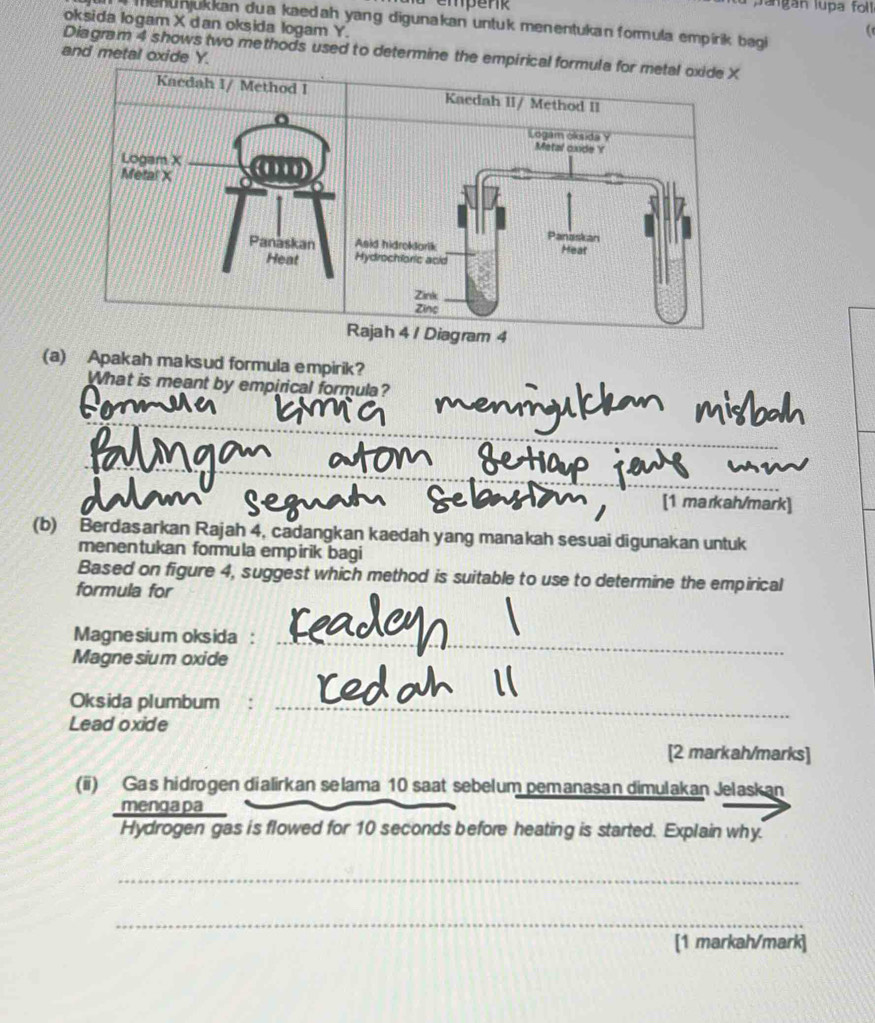 menunjukkan dua kaedah yang digunakan untuk menentukan formula empirik bagi
oksida logam X dan oksida logam Y.
Diagram 4 shows two methods used to determine the empirical formula for metal oxide X
and metal oxide Y.
lupa foll
Kaedah I/ Method I
Kaedah II/ Method II
Logam oksida Y
Metal oxide Y
Logam X
Metal X
Panaskan
Heat
Asid hidroklorik
Hydrochloric acid
Panaskan
Heat
Zink
Zinc
Rajah 4 / Diagram 4
(a) Apakah maksud formula empirik?
What is meant by empirical formula?
kimia misbah
atom setiap
dalam
[1 markah/mark]
(b) Berdasarkan Rajah 4, cadangkan kaedah yang manakah sesuai digunakan untuk
menentukan formula empirik bagi
Based on figure 4, suggest which method is suitable to use to determine the empirical
formula for
Magnesium oksida : 1
Magnesium oxide
Oksida plumbum : cedah 11
Lead oxide
[2 markah/marks]
(ii) Gas hidrogen dialirkan selama 10 saat sebelum pemanasan dimulakan Jelaskan
mengapa
Hydrogen gas is flowed for 10 seconds before heating is started. Explain why.
[1 markah/mark]